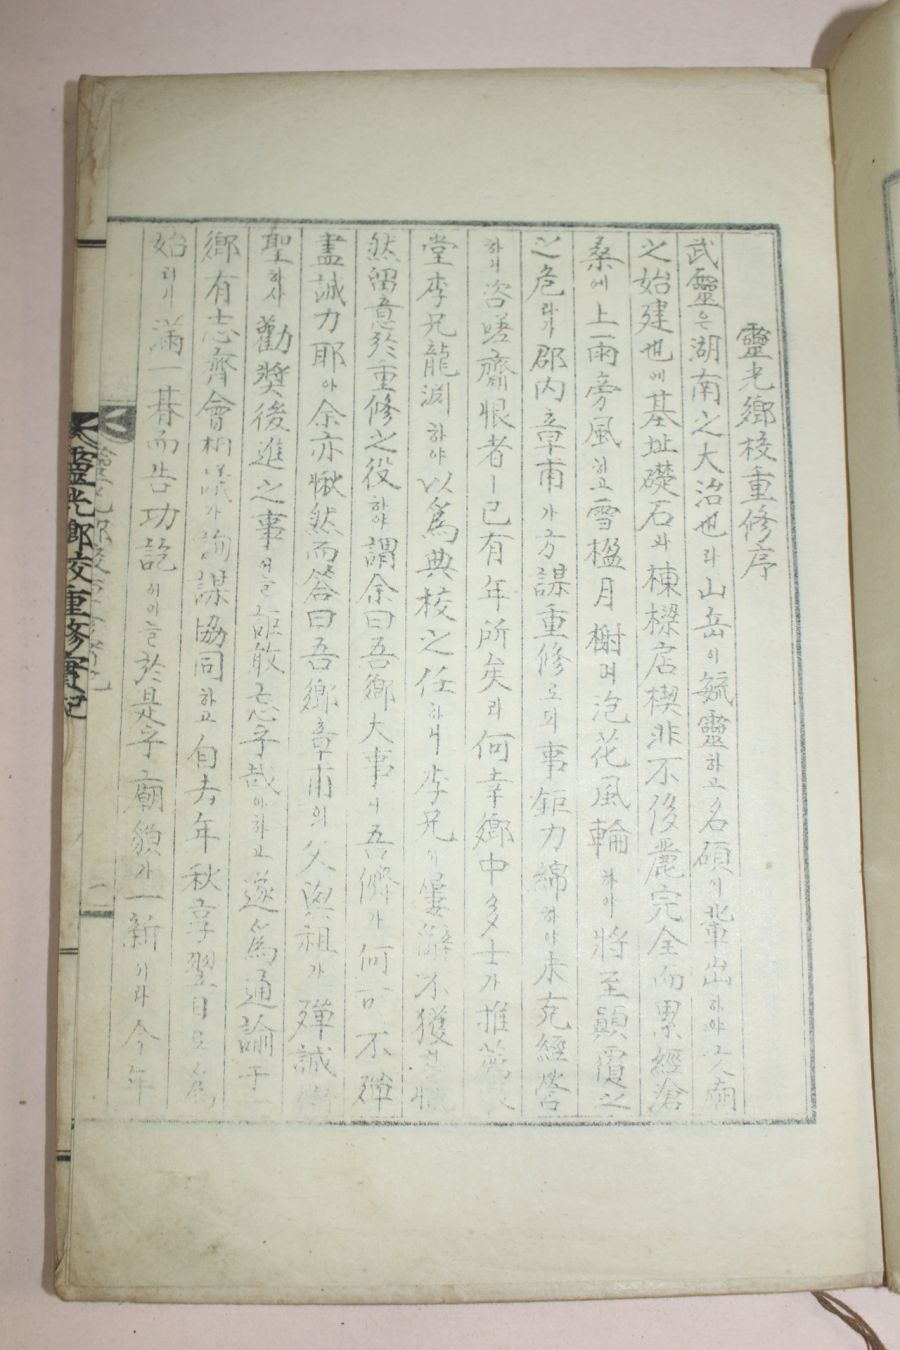 靈光鄕校重修序
武靈은湖南之大治也라山岳이毓靈하고名碩이輩出하야又廟
之始建也에基址礎石과棟樑扂楔非不俊麗完全而累經滄
桑에上雨旁風하고雪楹月榭며泡花風輪하야將至顚覆之
之危라가郡內章甫가方謀重修로되事鉅力綿하야未克經營
하니咨嗟齎恨者ㅣ已有年所矣라何幸鄕中多士가推薦
堂李兄龍淵하야以爲典校之任하니李兄이屢辭不獲
然留意於重修之役하야謂余曰吾鄕大事니吾儕가何可不殫
盡誠力耶아余亦愀然而答曰吾鄕章甫의父與祖가殫誠
聖하사勸獎後進之事어늘詎敢忘乎哉아하고遂爲通諭于
鄕有志齊會 詢謀協同하고自去年秋享翌日로爲
始러니滿一朞而告功訖이어늘於是乎廟貌가一新이라今年
靈光鄕校重修實記